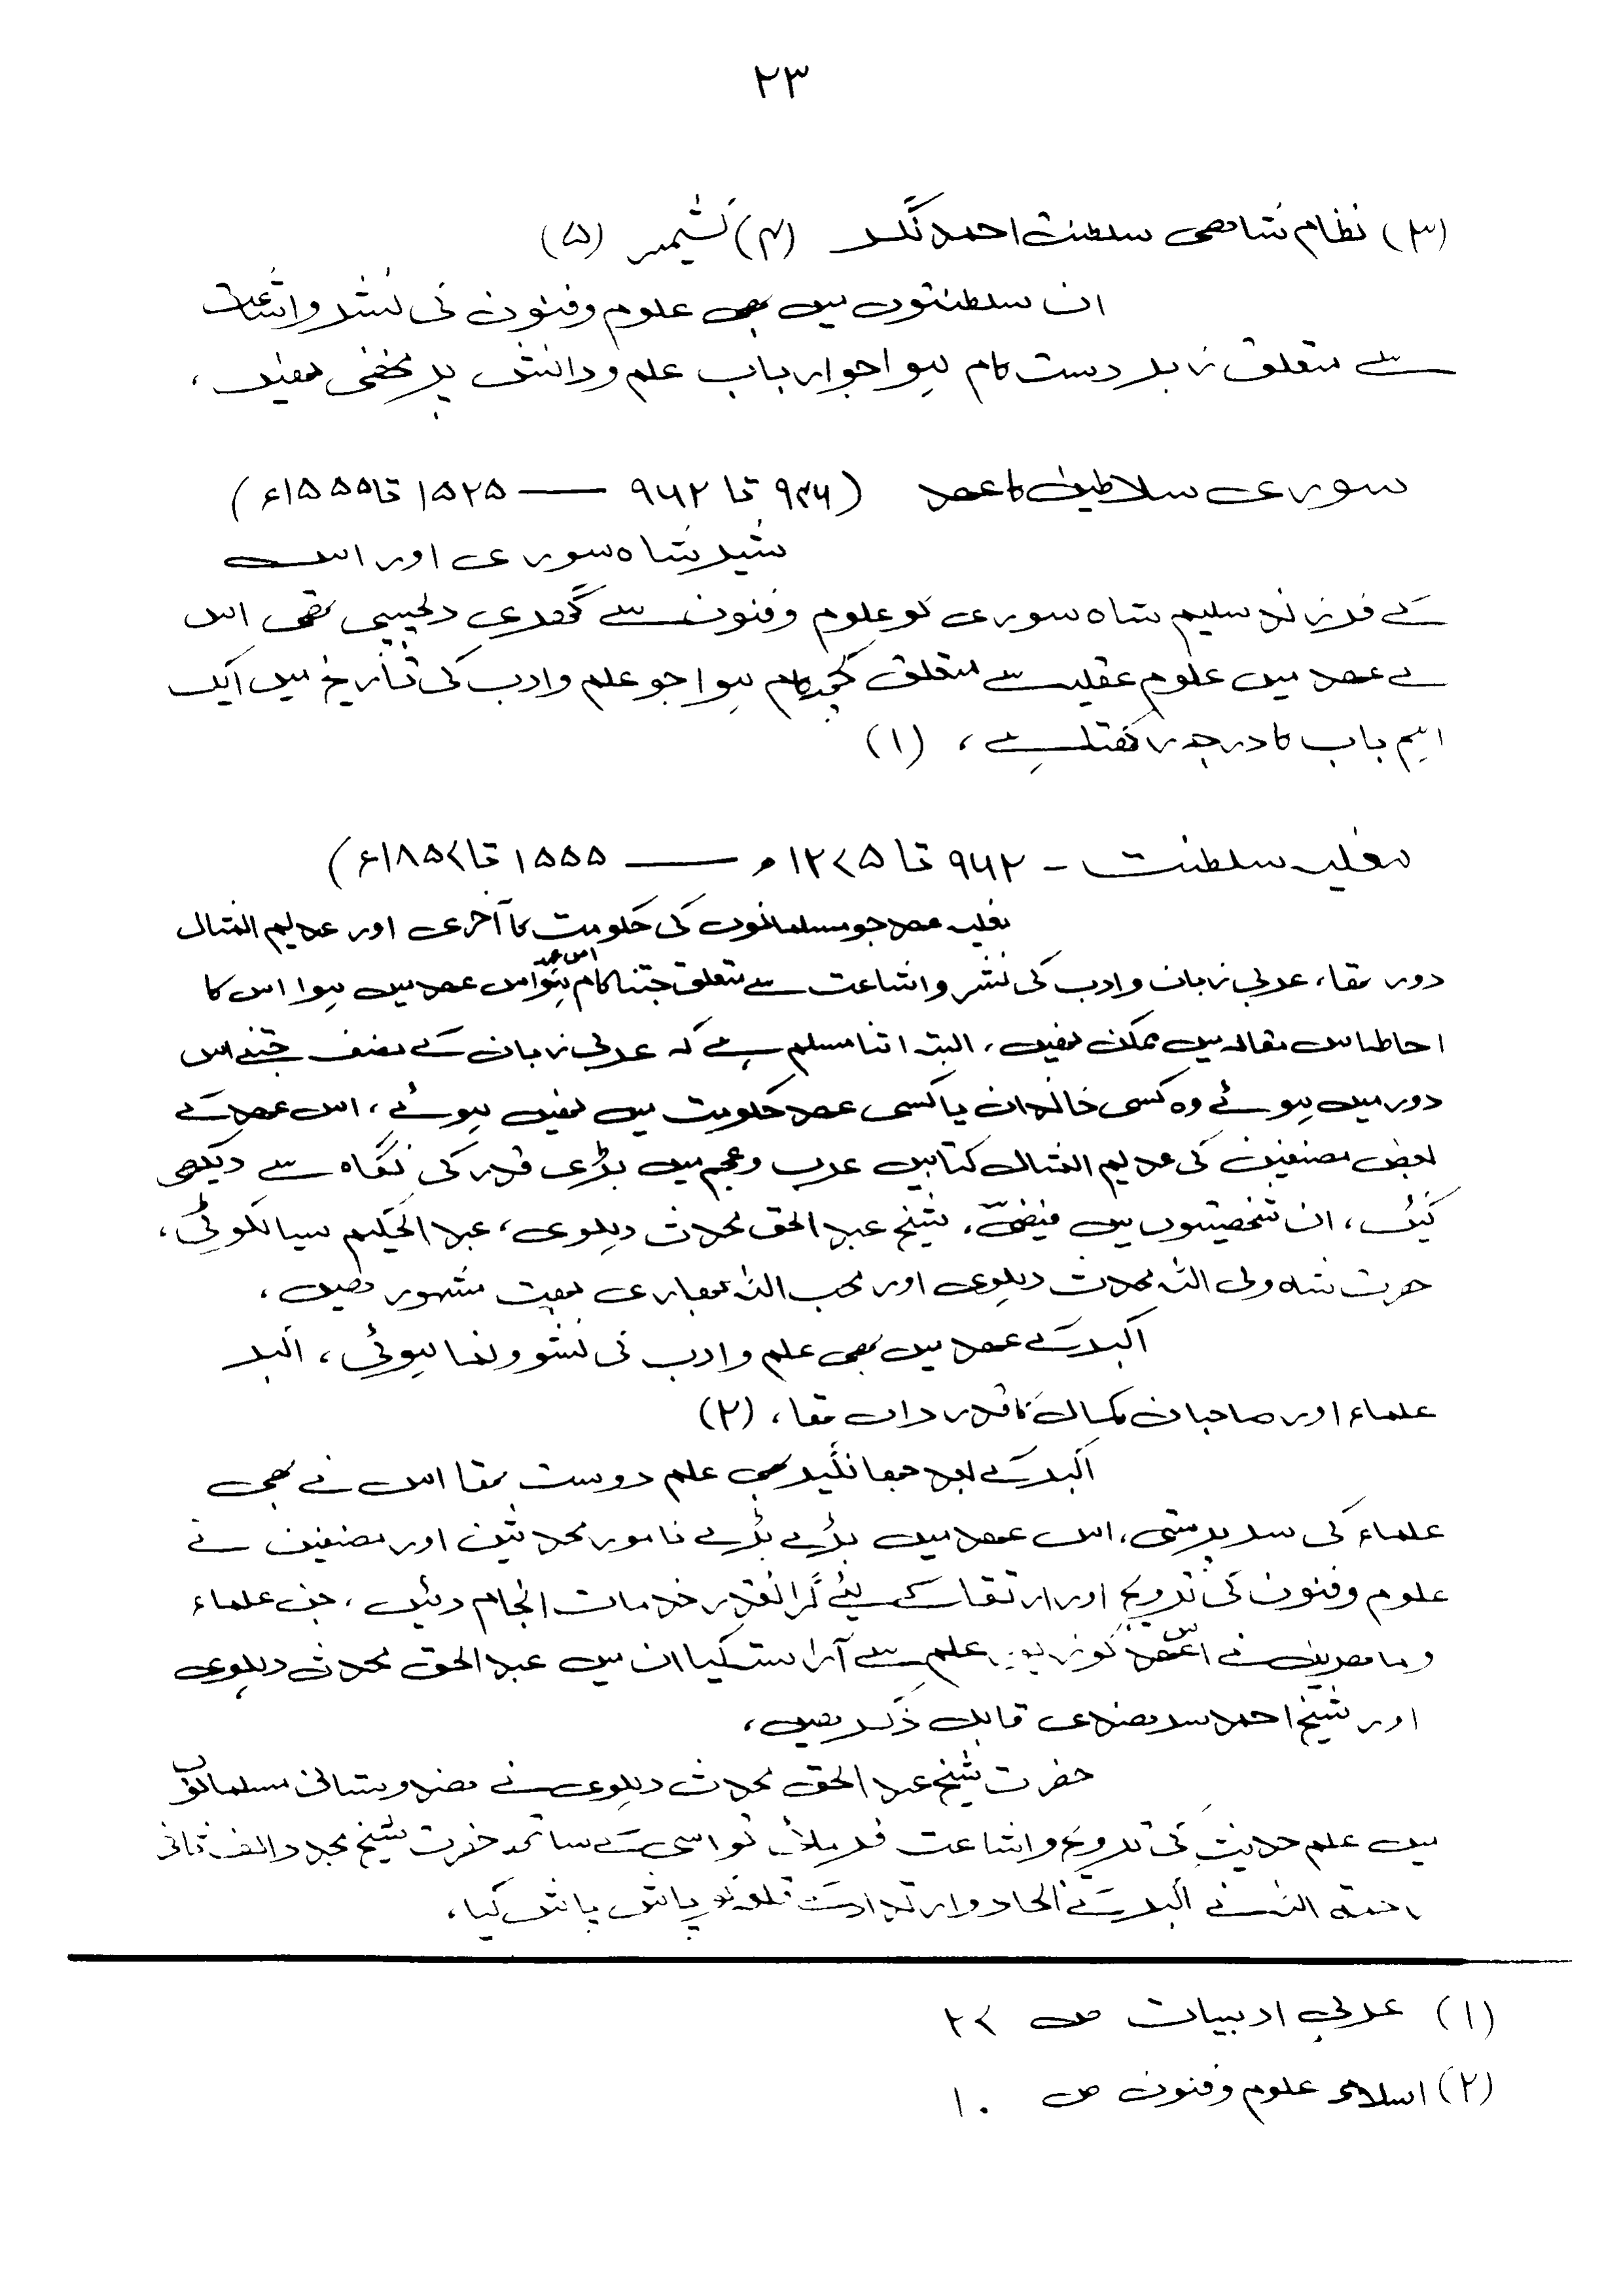 ۲۳
(۳) نظام شاھی سلطنت احمد نگر (۴) کشمیر (۵)
ان سلطنتوں میں بھی علوم وفنون کی نشر واشاعت
سے متعلق زبردست کام ہوا جو ارباب علم ودانش پر مخفی نھیں،
سوری سلاطین کا عھد (۹۴۶ تا ۹۶۲ — ۱۵۲۵ تا ۱۵۵۵ء)
شیر شاہ سوری اور اس
کے فرزند سلیم شاہ سوری کو علوم وفنون سے گھری دلچسپی تھی اس
کے عھد میں علوم عقلیہ سے متعلق کچھ کام ہوا جو علم وادب کی تأریخ میں ایک
اہم باب کا درجہ رکھتا ہے، (۱)
مغلیہ سلطنت - ۹۶۲ تا ۱۲۷۵ھ — ۱۵۵۵ تا ۱۸۵۷ء)
مغلیہ عھد جو مسلمانوں کی حکومت کا آخری اور عدیم المثال
دور تھا، عربی زبان وادب کی نشر واشاعت سے متعلق جتنا کام ہوا اس عھد میں ہوا اس کا
احاطہ اس مقالہ میں ممکن نھیں، البتہ اتنا مسلم ہے کہ عربی زبان کے مصنف جتنے اس
دور میں ہوئے وہ کسی خاندان یا کسی عھد حکومت میں نھیں ہوئے، اس عھد کے
بعض مصنفین کی عدیم المثال کتابیں عرب وعجم میں بڑی قدر کی نگاہ سے دیکھی
گئیں، ان شخصیتوں میں فیضیؒ، شیخ عبد الحق محدث دہلوی، عبد الحکیم سیالکوٹی،
حضرت شاہ ولی اللہ محدث دہلوی اور محب اللہ بھاری بھت مشھور ھیں،
اکبر کے عھد میں بھی علم وادب کی نشو ونما ہوئی، اکبر
علماء اور صاحبان کمال کا قدر داں تھا، (۲)
اکبر کے بعد جھانگیر بھی علم دوست تھا اس نے بھی
علماء کی سرپرستی، اس عھد میں بڑے بڑے نامور محدثین اور مصنفین نے
علوم وفنون کی ترویج اور ارتقا کے لیئے گرانقدر خدمات انجام دئیں، جن علماء
وماھرین نے اس عھد کو زیور علم سے آراستہ کیا ان میں عبد الحق محدث دہلوی
اور شیخ احمد سرھندی قابل ذکر ھیں،
حضرت شیخ عبد الحق محدث دہلوی نے ھندوستانی مسلمانوں
میں علم حدیث کی ترویج واشاعت فرمائی تو اسی کے ساتھ حضرت شیخ مجدد الف ثانی
رحمتہ اللہ نے اکبر کے الحاد وارتداد کے قلعہ کو پاش پاش کیا،
(۱) عربی ادبیات ص ۲۷
(۲) اسلامی علوم وفنون ص ۱۰